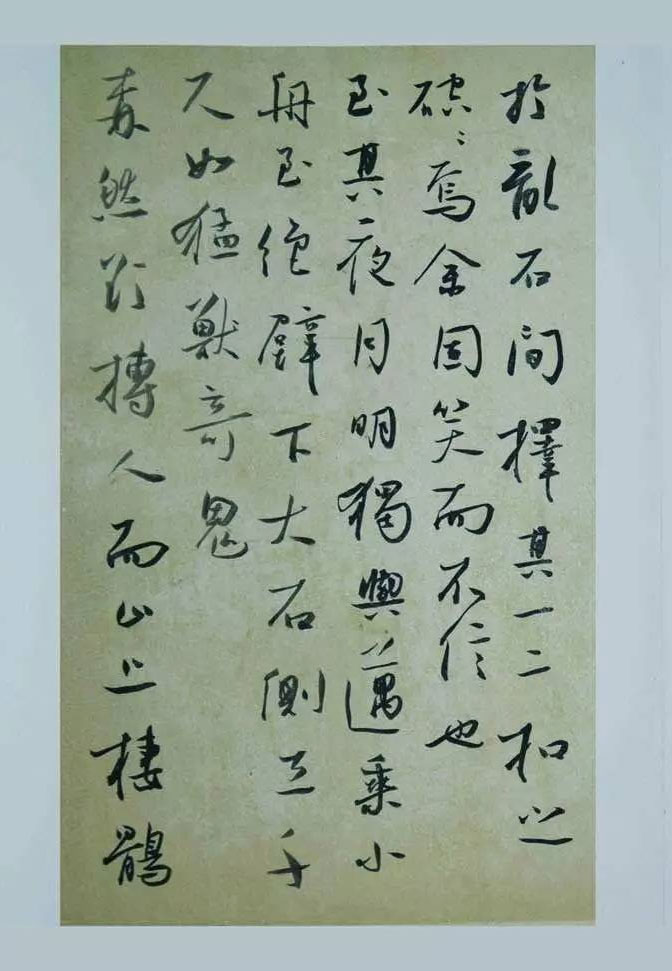 於亂石間擇其一二扣之
硿〻焉余固笑而不信也
至其夜月明獨與邁乘小
舟至絕壁下大石側立千
尺如猛獸奇鬼
森然欲搏人而山上棲鶻